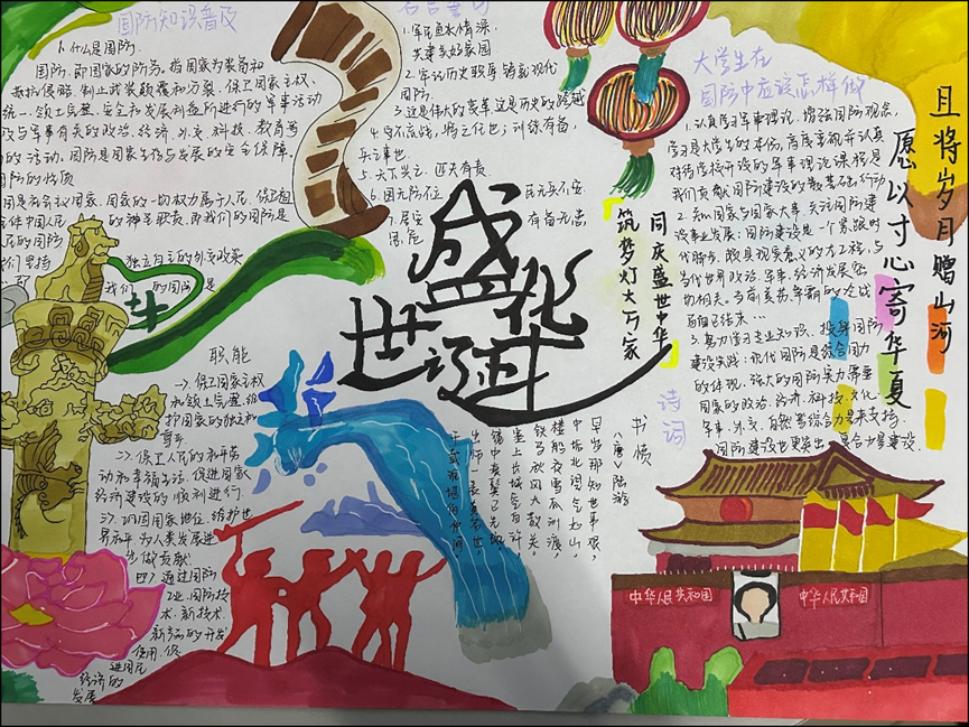 国防知识普及
1. 什么是国防
国防,即国家的防务。指国家为装备和
抵抗侵略,制止武装颠覆和分裂,保卫国家主权、
统一、领土完整、安全和发展利益所进行的军事活动
以及与军事有关的政治、经济、外交、科技、教育等
的活动。国防是国家生存与发展的安全保障。
国防的性质
我们的国防是
职能
一>、保卫国家主权
和领土完整,维
护国家的独立和
尊严
二>、保卫人民的和平劳
动和幸福生活,促进国家
经济建设的顺利进行.
三>、巩固国家地位,维护世
界和平,为人类发展进
步做贡献
四>、通过国防
工业、国防技
术、新技术、
新产品的开发
使用,促
进国民
经济的
发展
1. 军民鱼水情深,
共建美好家园
2. 牢记历史职责 铸就现代
国防.
3. 这是伟大的变革,这是历史的跨越
兵之事也.
5. 天下兴亡 匹夫有责
6. 国无防不立 民无兵不安
7. 居安思危 有备无患
盛世华诞
同庆盛世中华
筑梦灯火万家
大学生在
国防中应该怎样做
1. 认真学习军事理论,增强国防观念,
学习是大学生的本份,高度重视并认真
对待学校开设的军事理论课程是
我们贡献国防建设的最基础行动
2. 关心国家与国家大事,关注国防建
设事业发展:国防建设是一个紧跟时
代步伐,极具现实意义的大工程,与
当代世界政治、军事、经济发展密
切相关。当前美苏争霸的冷战
虽自己结束…
3. 努力学习专业知识,投身国防
建设实践:现代国防是综合国力
的体现,强大的国防实力需要
国家的政治、经济、科技、文化、
军事、外交、自然等综合力量来支持.
国防建设也更突出综合力量建设.
且将岁月赠山河
愿以寸心寄华夏
诗词
书愤
(唐)陆游
早岁那知世事艰,
中原北望气如山.
楼船夜雪瓜洲渡,
铁马秋风大散关.
塞上长城空自许
镜中衰鬓已先斑.
出师一表真名世
千载谁堪伯仲间
中华人民共和国
中华人民共和国